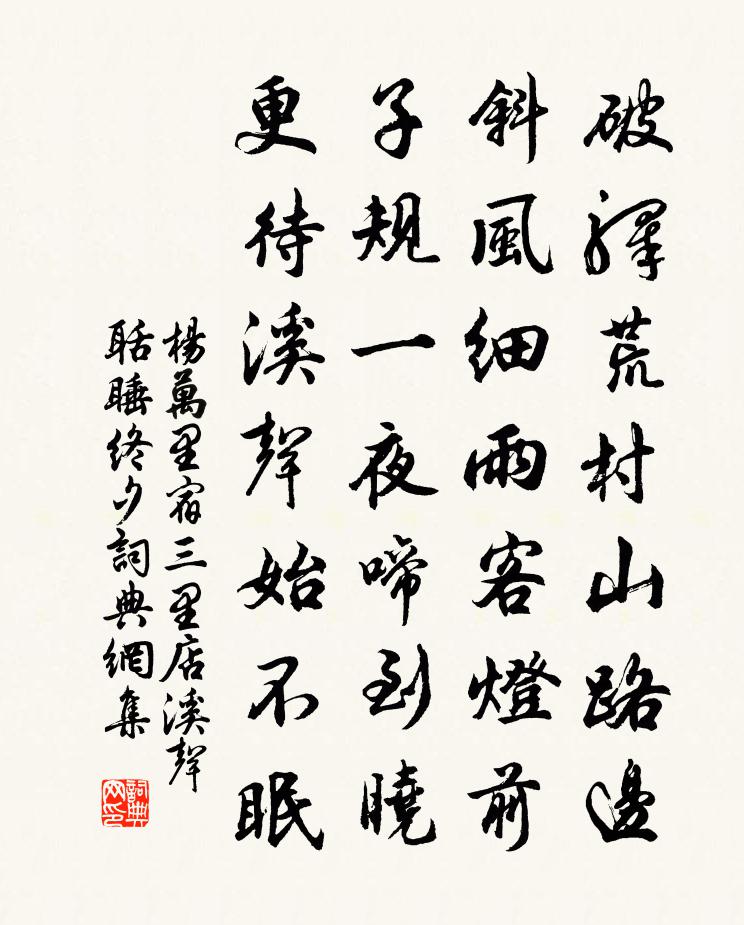 破驛荒村山路邊
斜風細雨客燈前
子規一夜啼到曉
更待溪聲始不眠
楊萬里宿三里店溪聲
聒睡終夕詞典網集
詞典网印